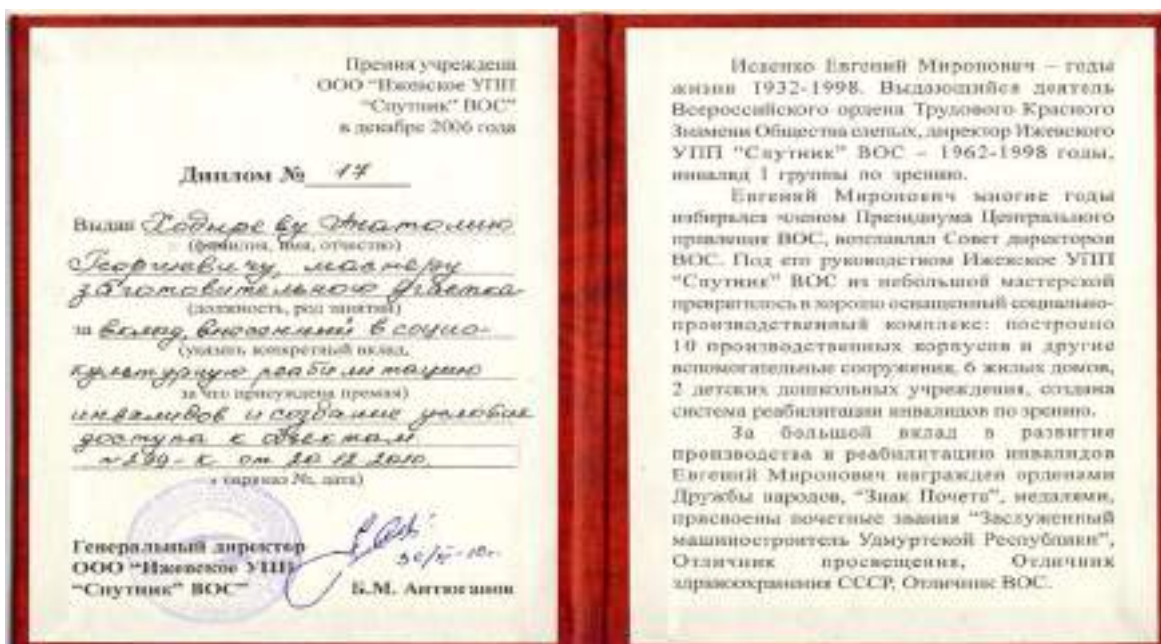 Премия учреждена
ООО "Ижевское УПП
"Спутник" ВОС"
в декабре 2006 года
Диплом № 17
Выдан Ходыреву Анатолию
(фамилия, имя, отчество)
Георгиевичу, мастеру
заготовительного участка
(должность, род занятий)
за вклад, внесенный в социо-
(указать конкретный вклад,
культурную реабилитацию
за что присуждена премия)
инвалидов и создание условий
доступа к объектам
№ 299-К от 20 12 2010.
(приказ №, дата)
Генеральный директор
ООО "Ижевское УПП
"Спутник" ВОС"
Б.М.
Исаенко Евгений Миронович – годы
жизни 1932-1998. Выдающийся деятель
Всероссийского ордена Трудового Красного
Знамени Общества слепых, директор Ижевского
УПП "Спутник" ВОС – 1962-1998 годы,
инвалид 1 группы по зрению.
Евгений Миронович многие годы
избирался членом Президиума Центрального
правления ВОС, возглавлял Совет директоров
ВОС. Под его руководством Ижевское УПП
"Спутник" ВОС из небольшой мастерской
превратилось в хорошо оснащенный социально-
производственный комплекс: построено
10 производственных корпусов и другие
вспомогательные сооружения, 6 жилых домов,
2 детских дошкольных учреждения, создана
система реабилитации инвалидов по зрению.
За большой вклад в развитие
производства и реабилитацию инвалидов
Евгений Миронович награжден орденами
Дружбы народов, "Знак Почета", медалями,
присвоены почетные звания "Заслуженный
машиностроитель Удмуртской Республики",
Отличник просвещения, Отличник
здравоохранения СССР, Отличник ВОС.